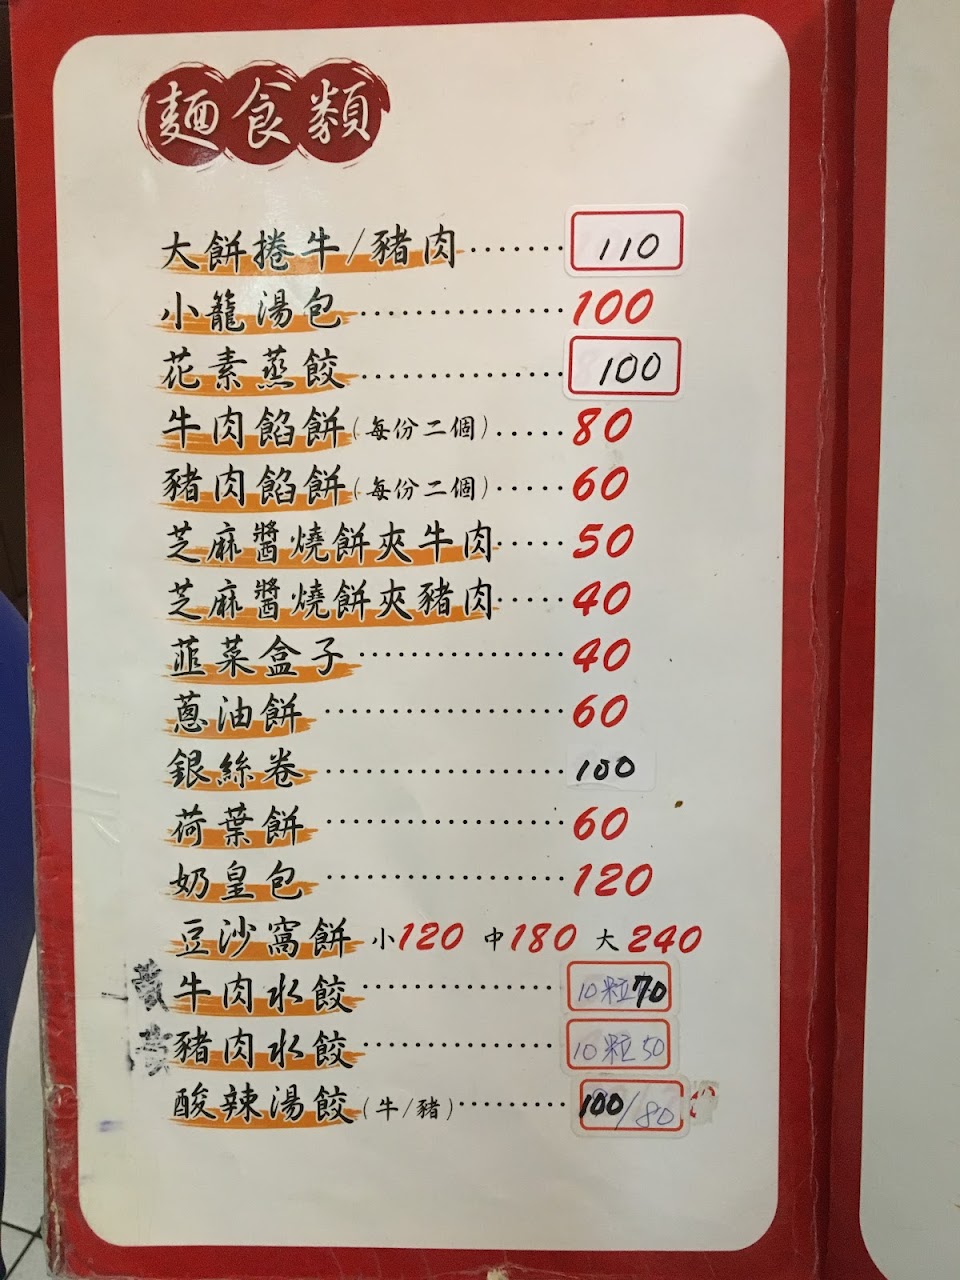 麵食類
大餅捲牛/豬肉·······110
小籠湯包···············100
花素蒸餃···············100
牛肉餡餅(每份二個)·····80
豬肉餡餅(每份二個)·····60
芝麻醬燒餅夾牛肉·····50
芝麻醬燒餅夾豬肉·····40
韮菜盒子···············40
蔥油餅··················60
銀絲卷··················100
荷葉餅··················60
奶皇包··················120
豆沙窩餅 小120 中180 大240
牛肉水餃···············10粒70
豬肉水餃···············10粒50
酸辣湯餃(牛/豬)········100/80